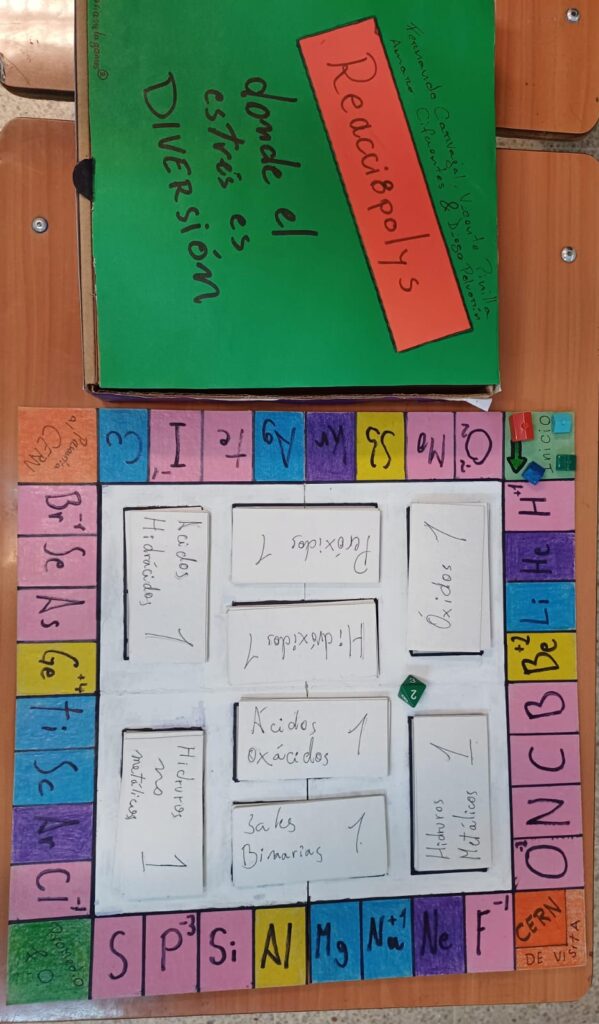 Reacci8polys
donde el
estrés es
DIVERSIÓN
Fernando Carvajal, Vicente Pinilla
Amaro Cifuentes & Diego
INICIO
H+1
He
Li
Be+2
B
C
N
O-2
CERN
DE VISITA
F-1
Ne
Na+1
Mg
Al
Si
P-3
S
Cl-1
Ar
Sc
Ti
Ge+4
As
Se
Br-1
al CERN
I-1
Te
Ag
Kr
Sb
O2-2
Óxidos 1
Peróxidos 1
Hidróxidos 1
Ácidos
Hidrácidos 1
Ácidos
oxácidos 1
Sales
Binarias 1
Hidruros
Metálicos 1
Hidruros
no
metálicos 1
2